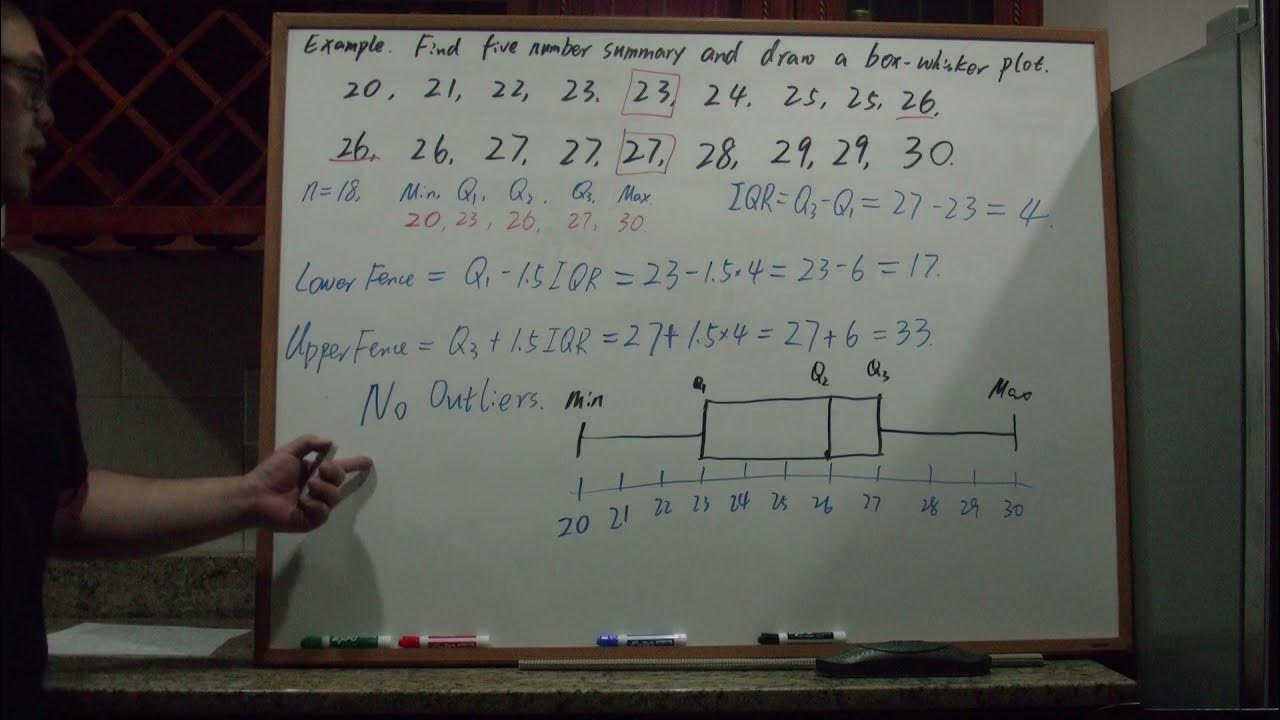 Example. Find five number summary and draw a box-whisker plot.
20, 21, 22, 23, 23, 24, 25, 25, 26,
26, 26, 27, 27, 27, 28, 29, 29, 30.
n=18, Min, Q1, Q2, Q3, Max. IQR=Q3-Q1=27-23=4.
20, 23, 26, 27, 30.
Lower Fence = Q1-1.5IQR=23-1.5×4=23-6=17.
Upper Fence = Q3+1.5IQR=27+1.5×4=27+6=33.
No Outliers.
Min Q1 Q2 Q3 Max
20 21 22 23 24 25 26 27 28 29 30